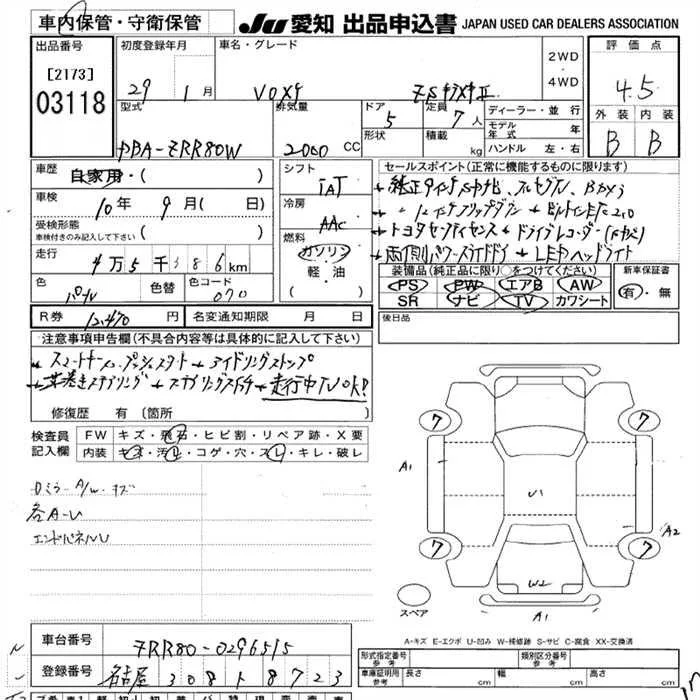 車内保管・守衛保管
JU 愛知 出品申込書 JAPAN USED CAR DEALERS ASSOCIATION
出品番号
[2173]
03118
初度登録年月
29 1月
車名・グレード
VOXY ZS
2WD
・
4WD
評価点
4.5
外装 内装
B B
型式
DBA-ZRR80W
排気量
2000 CC
ドア
5
形状
定員
7人
積載
kg
ディーラー・並行
モデル年式 年
ハンドル 左・右
車歴
自家用・( )
車検
10年 9月( 日)
受検形態
車検付きのみ記入して下さい ( )
走行
4万5千386km
色
パール
色替
色コード
070
R券 12,470 円
名変通知期限 月 日
シフト
IAT
冷房
AAC
燃料
ガソリン
軽・油
・( )
セールスポイント(正常に機能するものに限ります)
トヨタセーフティセンス ドライブレコーダー
両側パワースライドドア LEDヘッドライト
装備品(純正品に限り○をつけてください)
PS PW エアB AW
SR ナビ TV カワシート
新車保証書
有・無
後日品
注意事項申告欄(不具合内容等は具体的に記入して下さい)
スマートキー プッシュスタート アイドリングストップ
走行中TV OK!
修復歴 有 (箇所 )
検査員
記入欄
FW キズ・飛石・ヒビ割・リペア跡・X要
内装 キズ・汚レ・コゲ・穴・スレ・キレ・破レ
Dミラー A/W キズ
各A-U
エンドパネルU
7
7
A1
U1
7
7
A2
W2
A1
スペア
A-キズ E-エクボ U-凹み W-補修跡 S-サビ C-腐食 XX-交換済
車台番号 ZRR80-0296515
登録番号 名古屋 308 1 8723
形式指定番号
参考
類別区分番号
参考
車庫証明用
参考
長さ cm
幅 cm
高さ cm